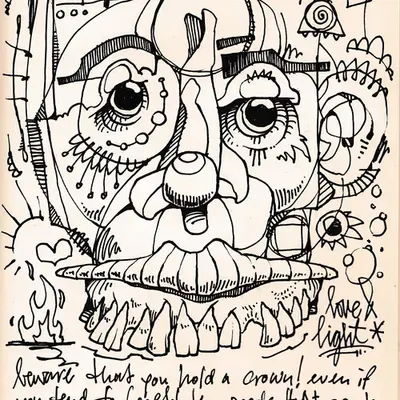 love &
light *
beware that you hold a crown! even if
you tend to